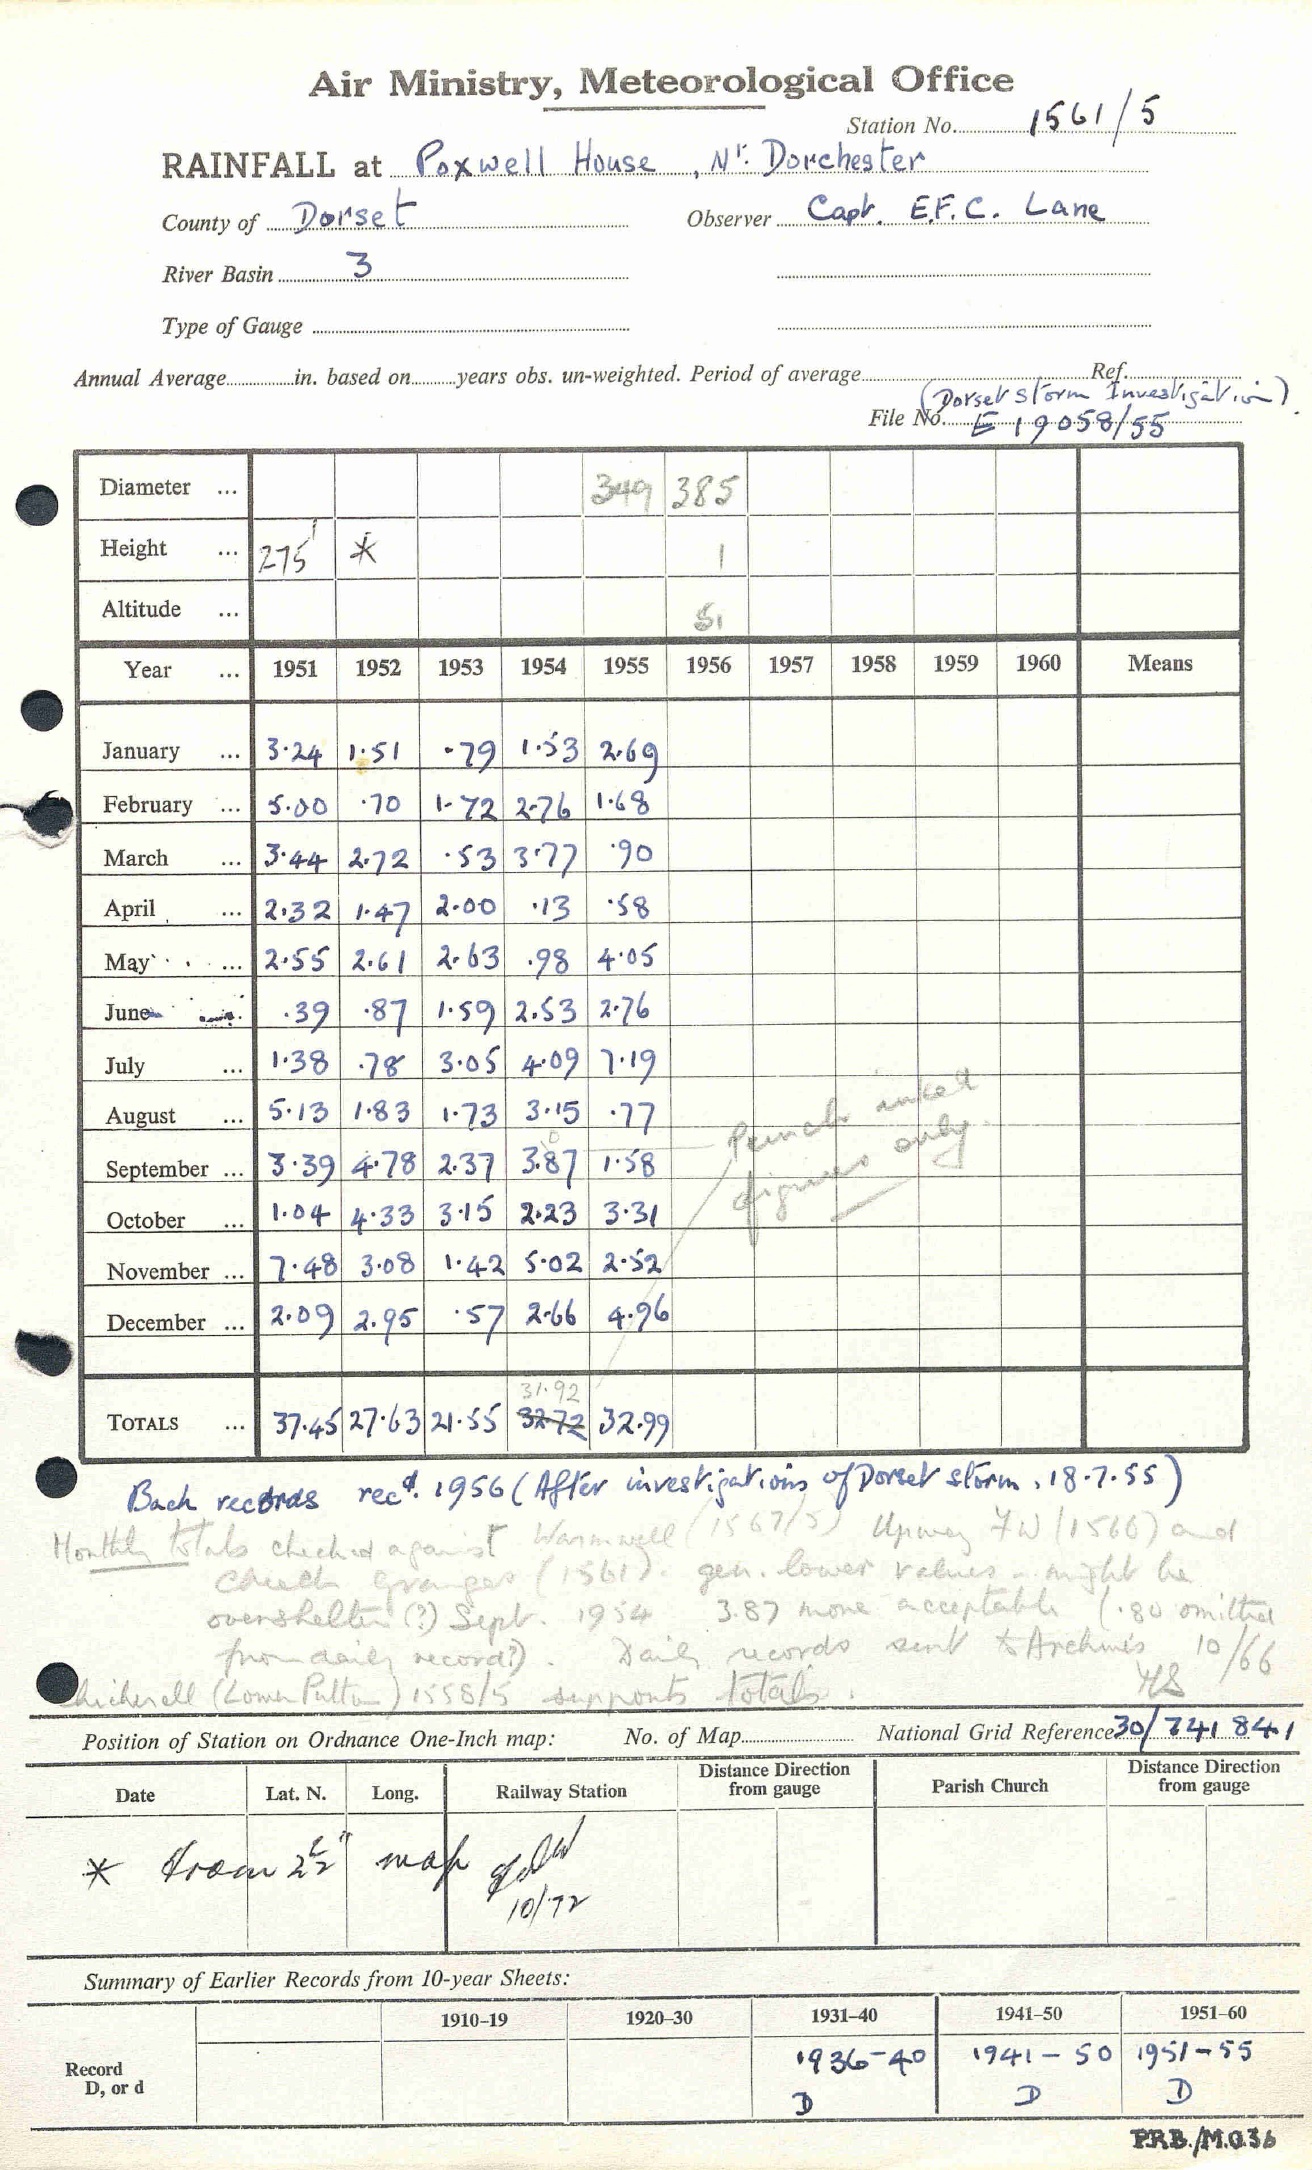 Air Ministry, Meteorological Office
Station No. 1561/5
RAINFALL at Poxwell House, Nr. Dorchester
County of Dorset Observer Capt. E.F.C. Lane
River Basin 3
Type of Gauge
Annual Average in. based on years obs. un-weighted. Period of average Ref.
(Dorset Storm Investigation).
File No. E 19058/55
Diameter ... 349 385
Height ... 275' * 1
Altitude ... 51
Year ... 1951 1952 1953 1954 1955 1956 1957 1958 1959 1960 Means
January ... 3.24 1.51 .79 1.53 2.69
February ... 5.00 .70 1.72 2.76 1.68
March ... 3.44 2.72 .53 3.77 .90
April ... 2.32 1.47 2.00 .13 .58
May ... 2.55 2.61 2.63 .98 4.05
June ... .39 .87 1.59 2.53 2.76
July ... 1.38 .78 3.05 4.09 7.19
August ... 5.13 1.83 1.73 3.15 .77
Punch inked
figures only.
September ... 3.39 4.78 2.37 3.87 1.58
October ... 1.04 4.33 3.15 2.23 3.31
November ... 7.48 3.08 1.42 5.02 2.52
December ... 2.09 2.95 .57 2.66 4.96
31.92
TOTALS ... 37.45 27.63 21.55 32.72 32.99
Back records recd. 1956 (After investigations of Dorset storm, 18.7.55)
Monthly totals checked against Warmwell (1567/5) Upwey PW (1566) and
Grange (1561). gen. lower values - might be
overshelter(?) Sept. 1954 3.87 more acceptable (.80 omitted
from daily record?). Daily records sent to Archives 10/66
HS
Chickerell (Lower Putton) 1558/5 supports totals.
Position of Station on Ordnance One-Inch map: No. of Map National Grid Reference 30/741 841
Date Lat. N. Long. Railway Station Distance Direction from gauge Parish Church Distance Direction from gauge
* from 2½" map
10/72
Summary of Earlier Records from 10-year Sheets:
1910–19 1920–30 1931–40 1941–50 1951–60
Record 1936-40 1941-50 1951-55
D, or d D D D
P.R.B./M.O.36